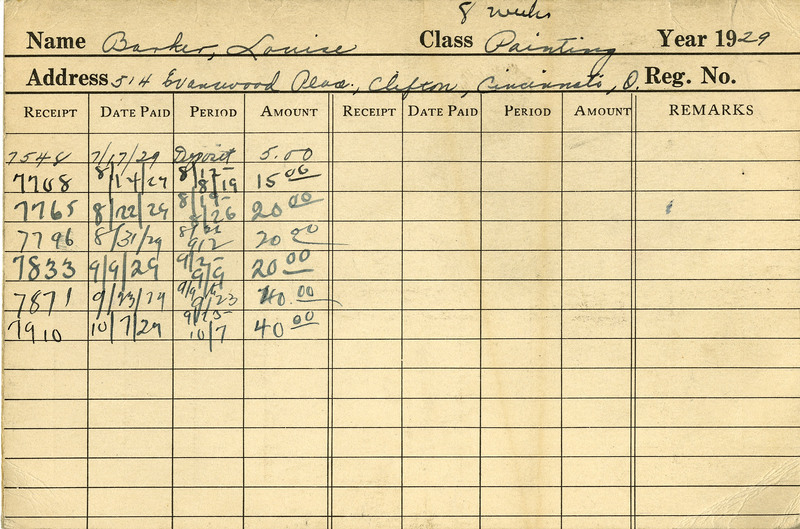 8 weeks
Name Barker, Louise Class Painting Year 1929
Address 514 Evanswood Place, Clifton, Cincinnati, O. Reg. No.
RECEIPT DATE PAID PERIOD AMOUNT RECEIPT DATE PAID PERIOD AMOUNT REMARKS
7548 7/17/29 Deposit 5.00
7708 8/14/29 8/12- 8/19 15 00
7765 8/22/29 8/19- 8/26 20 00
7796 8/31/29 8/26 9/2 20 00
7833 9/9/29 9/2- 9/9 20 00
7871 9/23/29 9/9 9/23 40.00
7910 10/7/29 9/23- 10/7 40 00